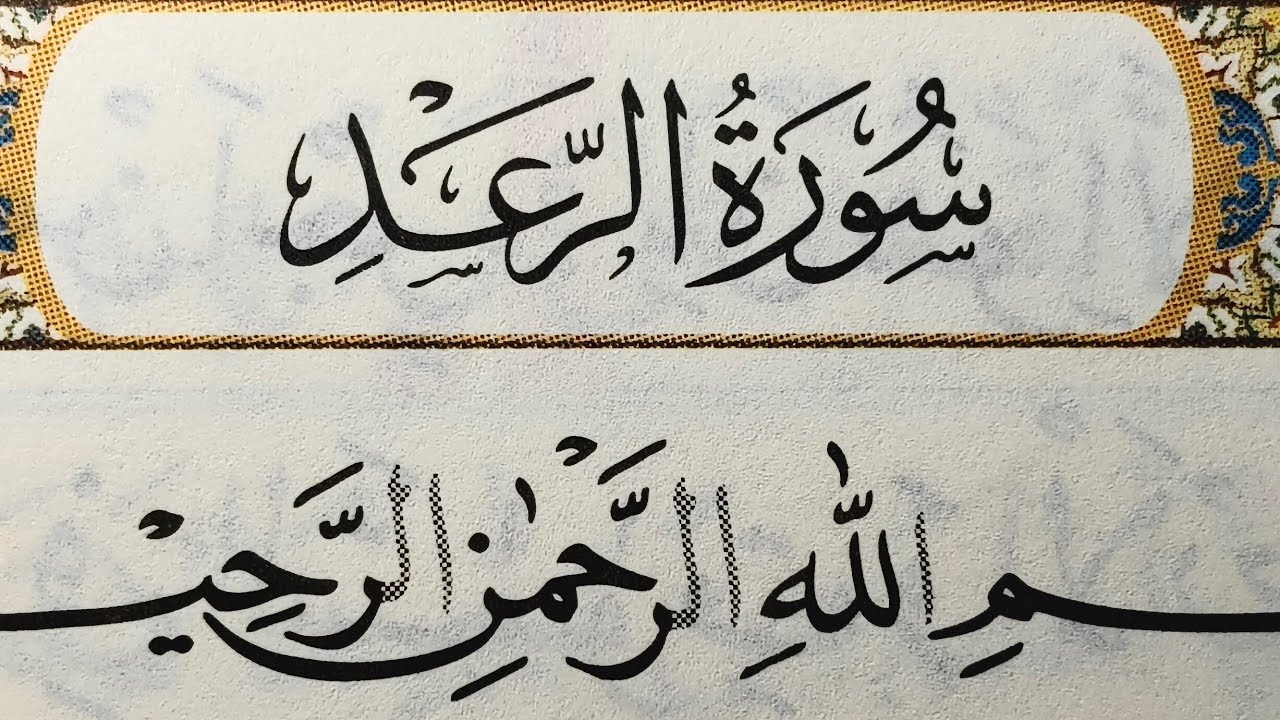 سُورَةُ الرَّعْدِ
ـسمِ اللّٰهِ الرَّحْمٰنِ الرَّحيـ